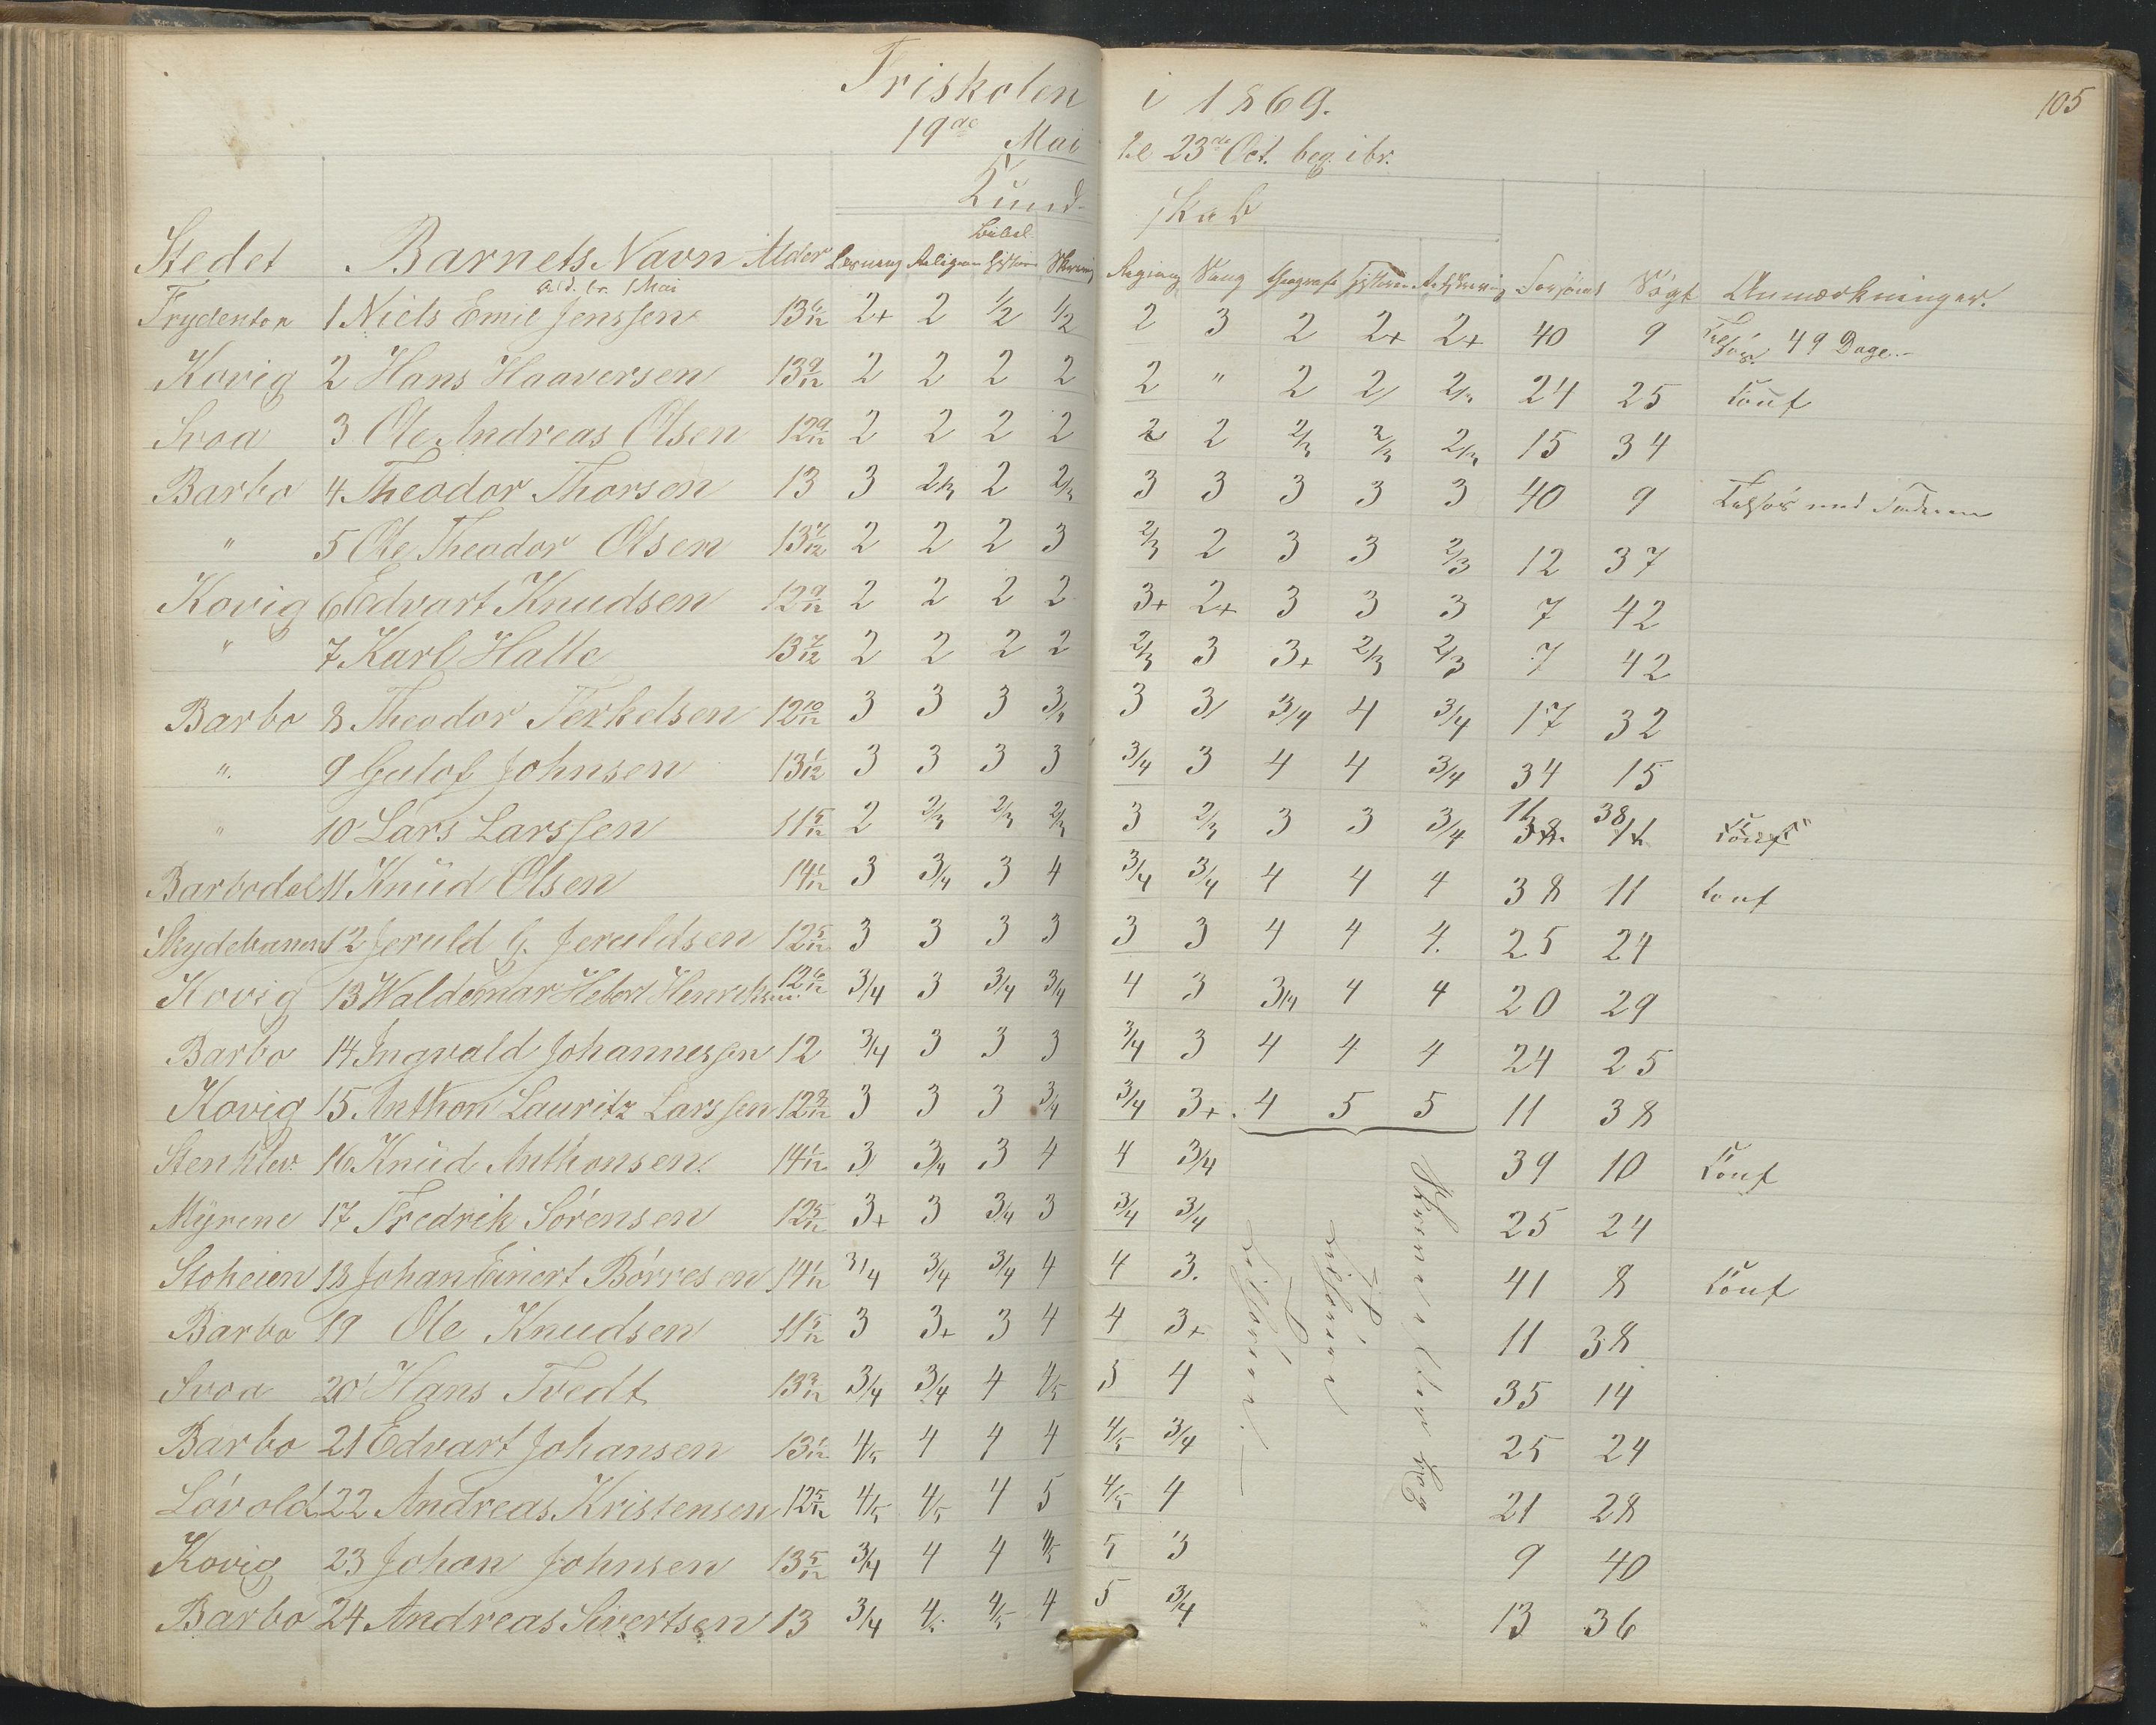 Friskolen i 1869. 105
19de Mai til 23de Oct. beg. ibr.
Kund- skab
Stedet Barnets Navn Alder Læsning Religion Bibel Historie Skrivning Regning Sang Geografi Historie Retskrivning Forsömt Sögt Anmærkninger.
Frydenton 1 Niels Emil Jenssen 13 6/12 2+ 2 1/2 1/2 2 3 2 2+ 2+ 40 9 49 Dage.
Kovig 2 Hans Haaversen 13 9/12 2 2 2 2 2 " 2 2 2/3 24 25 Conf
Svoa 3 Ole Andreas Olsen 12 9/12 2 2 2 2 2 2 2/3 2/3 2/3 15 34
Barbo 4 Theodor Thorsen 13 3 2/3 2 2/3 3 3 3 3 3 40 9
" 5 Ole Theodor Olsen 2 2 2 3 2/3 2 3 3 2/3 12 37
Kovig 6 Edvart Knudsen 12 9/12 2 2 2 2 3+ 2+ 3 3 3 7 42
" 7 Karl Halle 13 7/12 2 2 2 2 2/3 3 3+ 2/3 2/3 7 42
Barbo 8 Theodor Terkelsen 12 10/12 3 3 3 3/4 3 3 3/4 4 3/4 17 32
" 9 Gulof Johnsen 13 1/12 3 3 3 3 3/4 3 4 4 3/4 34 15
" 10 Lars Larssen 11 5/12 2 2/3 2/3 2/3 3 2/3 3 3 3/4 11 38
Barbodal 11 Knud Olsen 14 1/12 3 3/4 3 4 3/4 3/4 4 4 4 38 11 Conf
Skydebanen 12 Jeruld G. Jeruldsen 12 5/12 3 3 3 3 3 3 4 4 4. 25 24
Kovig 13 Waldemar Hebert Henriksen 12 6/12 3/4 3 3/4 3/4 4 3 3/4 4 4 20 29
Barbo 14 Ingvald Johannessen 12 3/4 3 3 3 3/4 3 4 4 4 24 25
Kovig 15 Anthon Lauritz Larssen 12 3/12 3 3 3 3/4 3/4 3+ 4 5 5 11 38
Stenklev 16 Knud Anthonsen. 14 1/12 3 3/4 3 4 4 3/4 39 10 Conf
Myrene 17 Fredrik Sörensen 12 5/12 3+ 3 3/4 3 3/4 3/4 25 24
Stoheien 18 Johan Einert Börresen 14 1/12 3/4 3/4 3/4 4 4 3. 41 8 Conf
Barbo 19 Ole Knudsen 11 5/12 3 3+ 3 4 4 3+ 11 38
Svoa 20 Hans Tvedt 13 3/12 3/4 3/4 4 4/5 5 4 35 14
Barbo 21 Edvart Johansen 13 1/12 4/5 4 4 4 4/5 3/4 25 24
Lövold 22 Andreas Kristensen 12 5/12 4/5 4/5 4 5 4/5 4 21 28
Kovig 23 Johan Johnsen 13 5/12 3/4 4 4 4/5 5 3 9 40
Barbo 24 Andreas Sivertsen 13 3/4 4/5 4/5 4 5 3/4 13 36